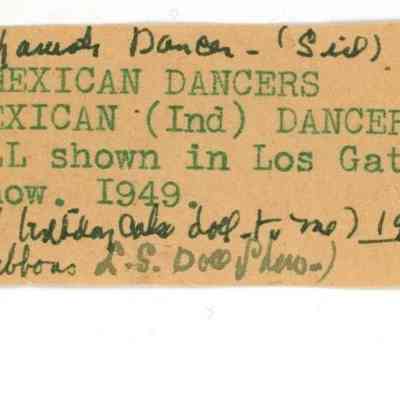 Dancer - (Sid)
MEXICAN DANCERS
EXICAN (Ind) DANCER
LL shown in Los Gat
how. 1949.
birthday Cake doll - to me) 19
ibbons L.S. Doll Show-)